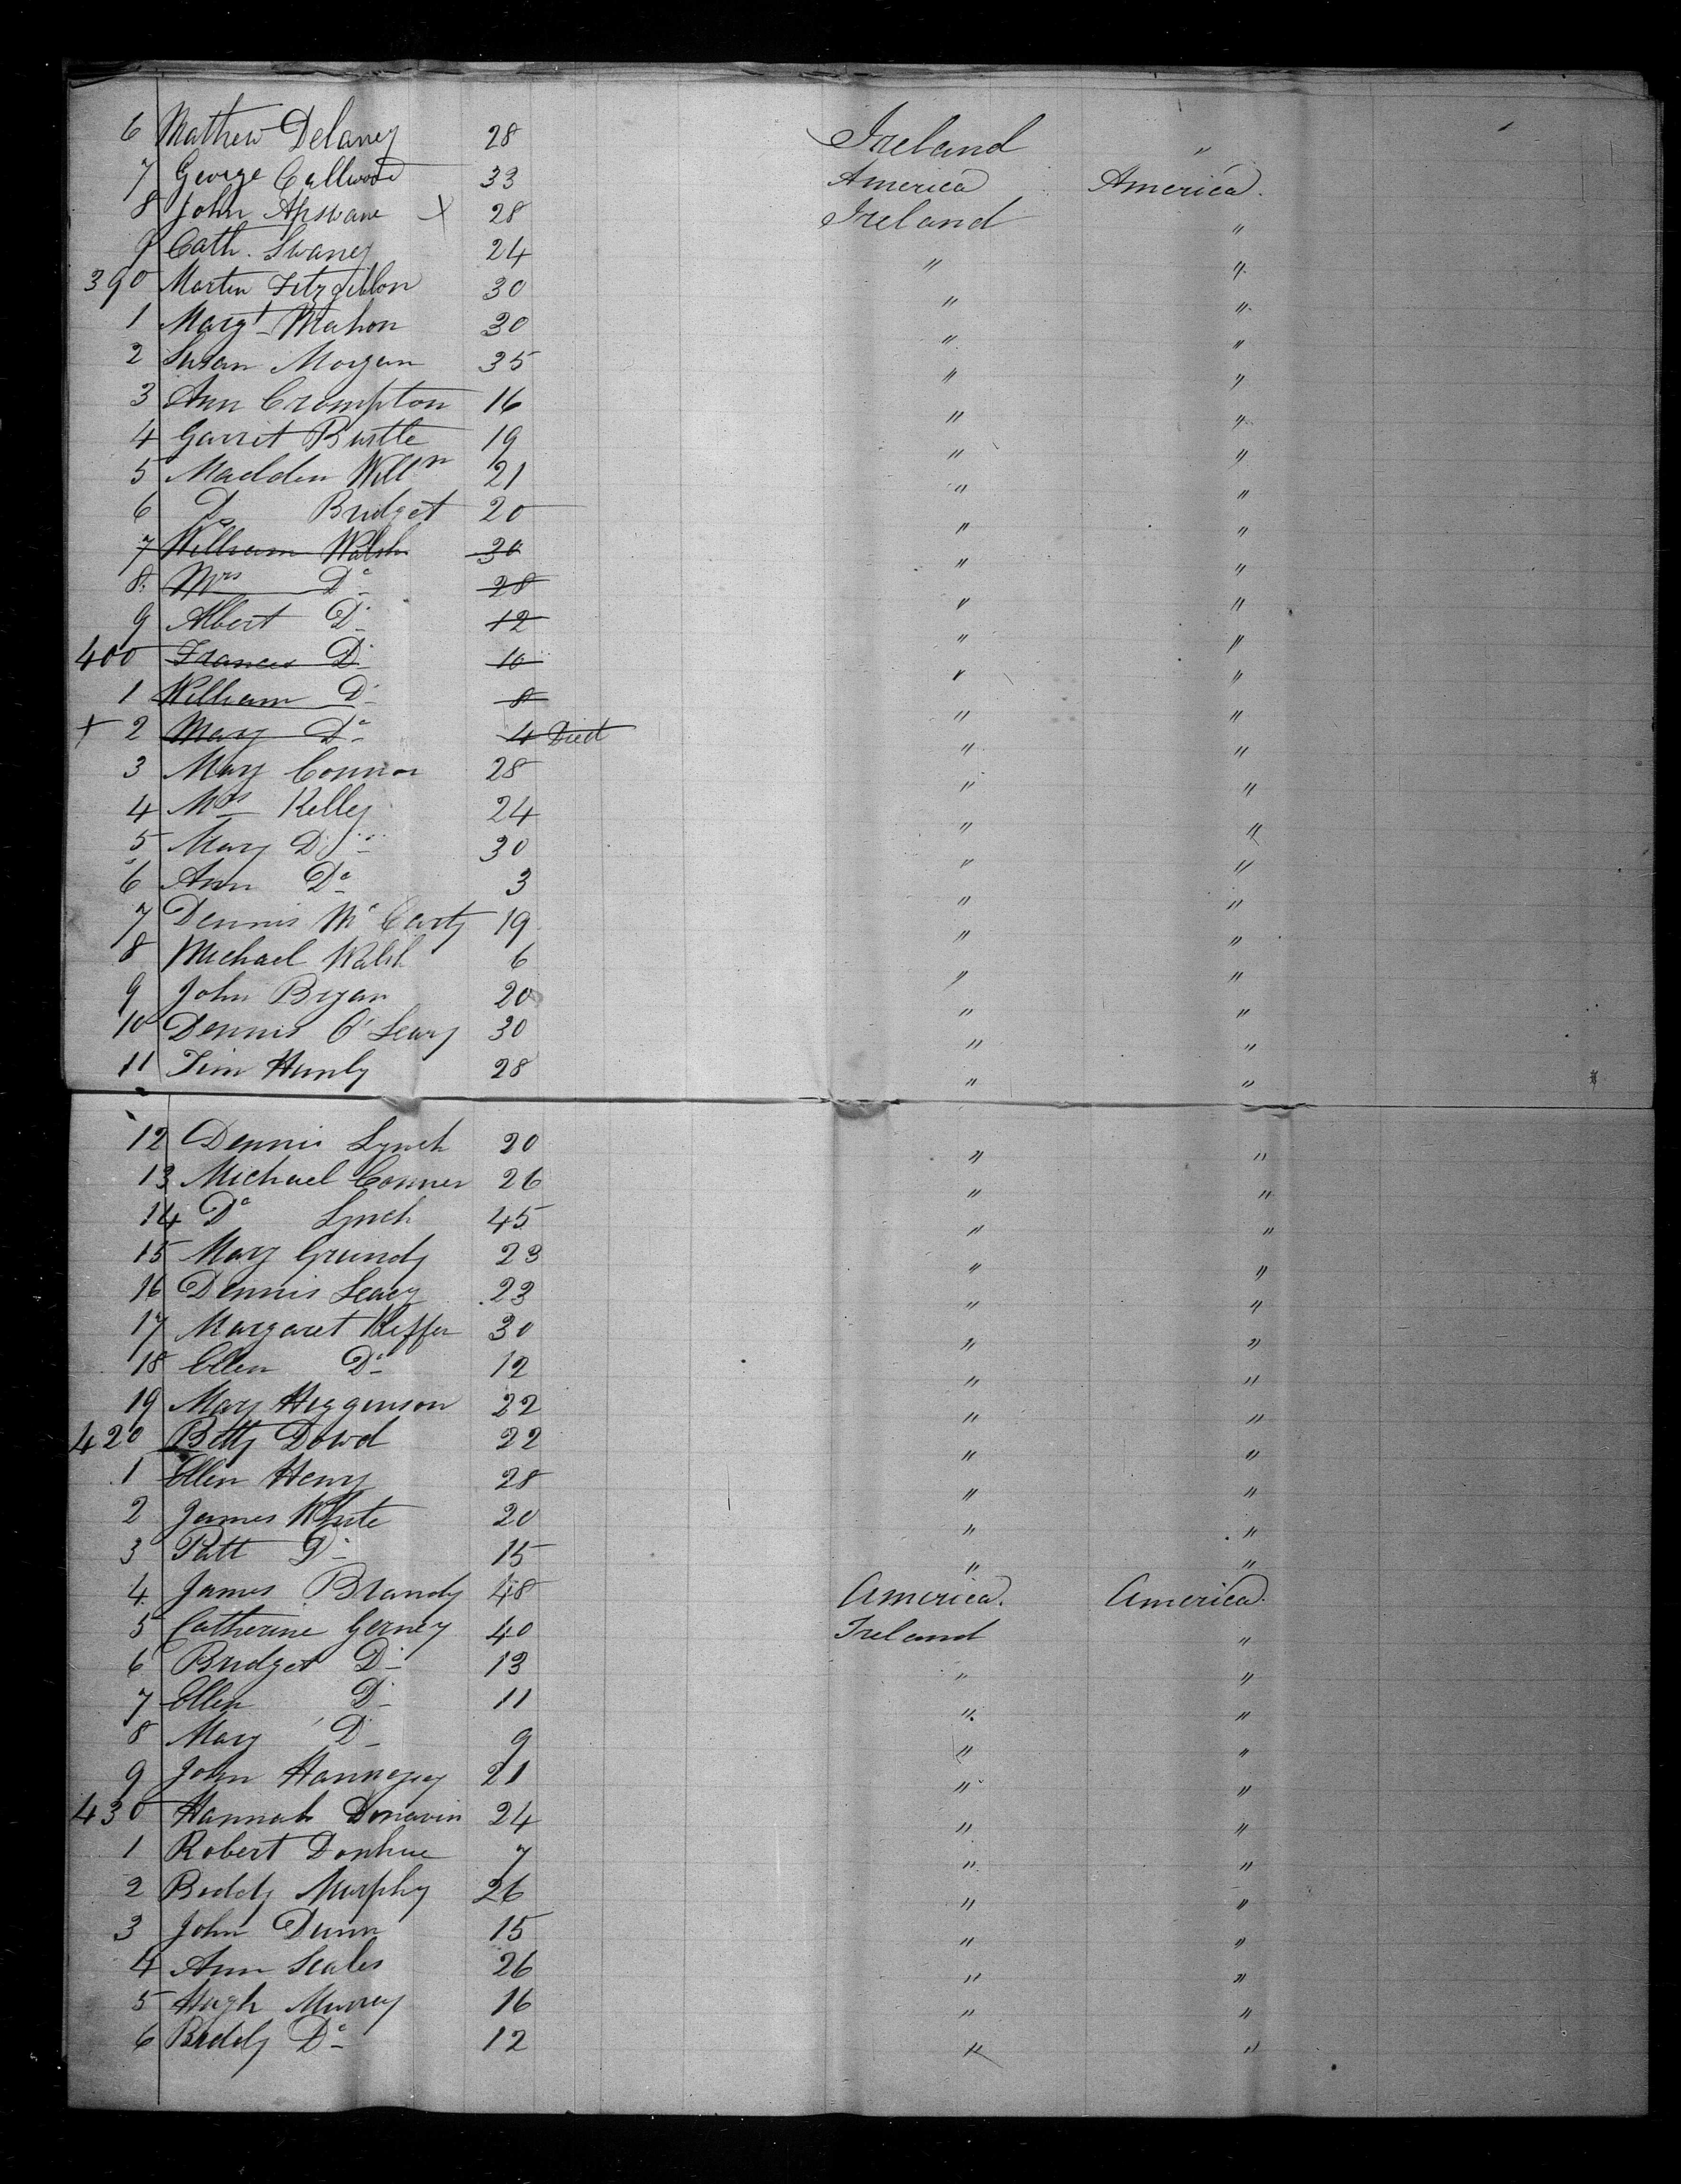 6 Mathew Delaney 28 Ireland "
7 George Callwood 33 America America.
8 John X 28 Ireland "
9 Cath. Swaney 24 " "
390 Martin Fitzgibbon 30 " "
1 Margt Mahon 30 " "
2 Susan Morgan 35 " "
3 Ann Crompton 16 " "
4 Garret Burtle 19 " "
5 Madden Willm 21 " "
6 Do Bridget 20 " "
7 William Walsh 30 " "
8. Mrs Do 28 " "
9 Albert Do 12 " "
400 Frances Do 10 " "
1 William Do 8 " "
X 2 Mary Do 4 Died " "
3 Mary Connor 28 " "
4 Mrs Kelley 24 " "
5 Mary Do 30 " "
6 Ann Do 3 " "
7 Dennis Mc Carty 19 " "
8 Michael Walsh 6 " "
9 John Bryan 20 " "
10 Dennis O'Leary 30 " "
11 Tim Hunly 28 " "
12 Dennis Lynch 20 " "
13 Michael Conner 26 " "
14 Do Lynch 45 " "
15 Mary Grundy 23 " "
16 Dennis Leary 23 " "
17 Margaret Keffer 30 " "
18 Ellen Do 12 " "
19 Mary Higginson 22 " "
420 Betty Dowd 22 " "
1 Ellen Henry 28 " "
2 James White 20 " "
3 Patt Do 15 " "
4 James Brandy 48 America. America.
5 Catherine Gerney 40 Ireland "
6 Bridget Do 13 " "
7 Ellen Do 11 " "
8 Mary Do 9 " "
9 John 21 " "
430 Hannah Donavin 24 " "
1 Robert Donhue 7 " "
2 Biddy Murphy 26 " "
3 John Dunn 15 " "
4 Ann Scales 26 " "
5 Hugh Murray 16 " "
6 Biddy Do 12 " "